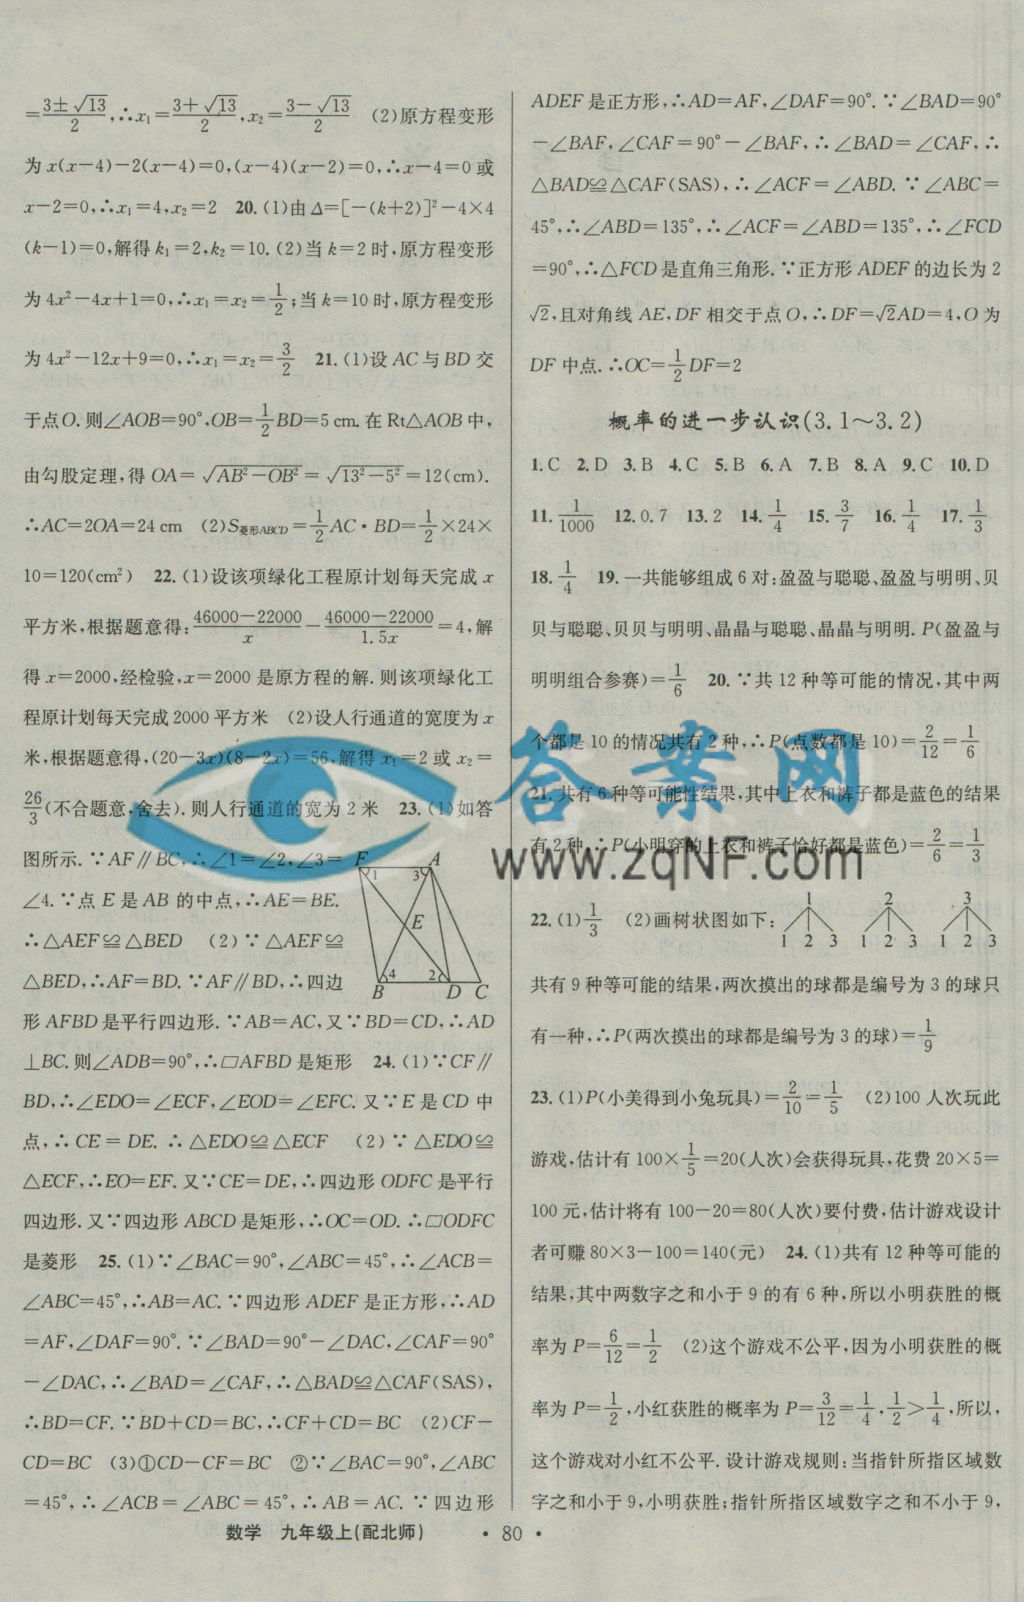 =(3±√13)/2,∴x₁=(3+√13)/2,x₂=(3-√13)/2 (2)原方程变形
为x(x-4)-2(x-4)=0,(x-4)(x-2)=0,∴x-4=0或
x-2=0,∴x₁=4,x₂=2 20.(1)由Δ=[-(k+2)]²-4×4
(k-1)=0,解得k₁=2,k₂=10.(2)当k=2时,原方程变形
为4x²-4x+1=0,∴x₁=x₂=1/2;当k=10时,原方程变形
为4x²-12x+9=0,∴x₁=x₂=3/2 21.(1)设AC与BD交
于点O.则∠AOB=90°,OB=1/2BD=5 cm.在Rt△AOB中,
由勾股定理,得OA=√(AB²-OB²)=√(13²-5²)=12(cm).
∴AC=2OA=24 cm (2)S菱形ABCD=1/2AC·BD=1/2×24×
10=120(cm²) 22.(1)设该项绿化工程原计划每天完成x
平方米,根据题意得:(46000-22000)/x-(46000-22000)/1.5x=4,解
得x=2000,经检验,x=2000是原方程的解.则该项绿化工
程原计划每天完成2000平方米 (2)设人行通道的宽度为x
米,根据题意得,(20-3x)(8-2x)=56,解得x₁=2或x₂=
26/3(不合题意,舍去).则人行通道的宽为2米 23.(1)如答
图所示.∵AF∥BC,∴∠1=∠2,∠3=
∠4.∵点E是AB的中点,∴AE=BE.
∴△AEF≌△BED (2)∵△AEF≌
△BED,∴AF=BD.∵AF∥BD,∴四边
形AFBD是平行四边形.∵AB=AC,又∵BD=CD,∴AD
⊥BC.则∠ADB=90°,∴□AFBD是矩形 24.(1)∵CF∥
BD,∴∠EDO=∠ECF,∠EOD=∠EFC.又∵E是CD中
点,∴CE=DE.∴△EDO≌△ECF (2)∵△EDO≌
△ECF,∴EO=EF.又∵CE=DE,∴四边形ODFC是平行
四边形.又∵四边形ABCD是矩形,∴OC=OD.∴□ODFC
是菱形 25.(1)∵∠BAC=90°,∠ABC=45°,∴∠ACB=
∠ABC=45°,∴AB=AC.∵四边形ADEF是正方形,∴AD
=AF,∠DAF=90°.∵∠BAD=90°-∠DAC,∠CAF=90°
-∠DAC,∴∠BAD=∠CAF,∴△BAD≌△CAF(SAS),
∴BD=CF.∵BD+CD=BC,∴CF+CD=BC (2)CF-
CD=BC (3)①CD-CF=BC ②∵∠BAC=90°,∠ABC
=45°,∴∠ACB=∠ABC=45°,∴AB=AC.∵四边形
F A
1 3
E
4 2
B D C
ADEF是正方形,∴AD=AF,∠DAF=90°.∵∠BAD=90°
-∠BAF,∠CAF=90°-∠BAF,∴∠BAD=∠CAF,∴
△BAD≌△CAF(SAS),∴∠ACF=∠ABD.∵∠ABC=
45°,∴∠ABD=135°,∴∠ACF=∠ABD=135°,∴∠FCD
=90°,∴△FCD是直角三角形.∵正方形ADEF的边长为2
√2,且对角线AE,DF相交于点O,∴DF=√2AD=4,O为
DF中点.∴OC=1/2DF=2
概率的进一步认识(3.1～3.2)
1.C 2.D 3.B 4.C 5.B 6.A 7.B 8.A 9.C 10.D
11.1/1000 12.0.7 13.2 14.1/4 15.3/7 16.1/4 17.1/3
18.1/4 19.一共能够组成6对:盈盈与聪聪、盈盈与明明、贝
贝与聪聪、贝贝与明明、晶晶与聪聪、晶晶与明明.P(盈盈与
明明组合参赛)=1/6 20.∵共12种等可能的情况,其中两
个都是10的情况共有2种,∴P(点数都是10)=2/12=1/6
21.共有6种等可能性结果,其中上衣和裤子都是蓝色的结果
有2种,∴P(小明穿的上衣和裤子恰好都是蓝色)=2/6=1/3
22.(1)1/3 (2)画树状图如下:
1 2 3
1 2 3 1 2 3 1 2 3
共有9种等可能的结果,两次摸出的球都是编号为3的球只
有一种,∴P(两次摸出的球都是编号为3的球)=1/9
23.(1)P(小美得到小兔玩具)=2/10=1/5 (2)100人次玩此
游戏,估计有100×1/5=20(人次)会获得玩具,花费20×5=
100元,估计将有100-20=80(人次)要付费,估计游戏设计
者可赚80×3-100=140(元) 24.(1)共有12种等可能的
结果,其中两数字之和小于9的有6种,所以小明获胜的概
率为P=6/12=1/2 (2)这个游戏不公平,因为小明获胜的概
率为P=1/2,小红获胜的概率为P=3/12=1/4,1/2>1/4,所以,
这个游戏对小红不公平.设计游戏规则:当指针所指区域数
字之和小于9,小明获胜;指针所指区域数字之和不小于9,
答案网
www.zqNF.com
数学 九年级上(配北师) ·80·